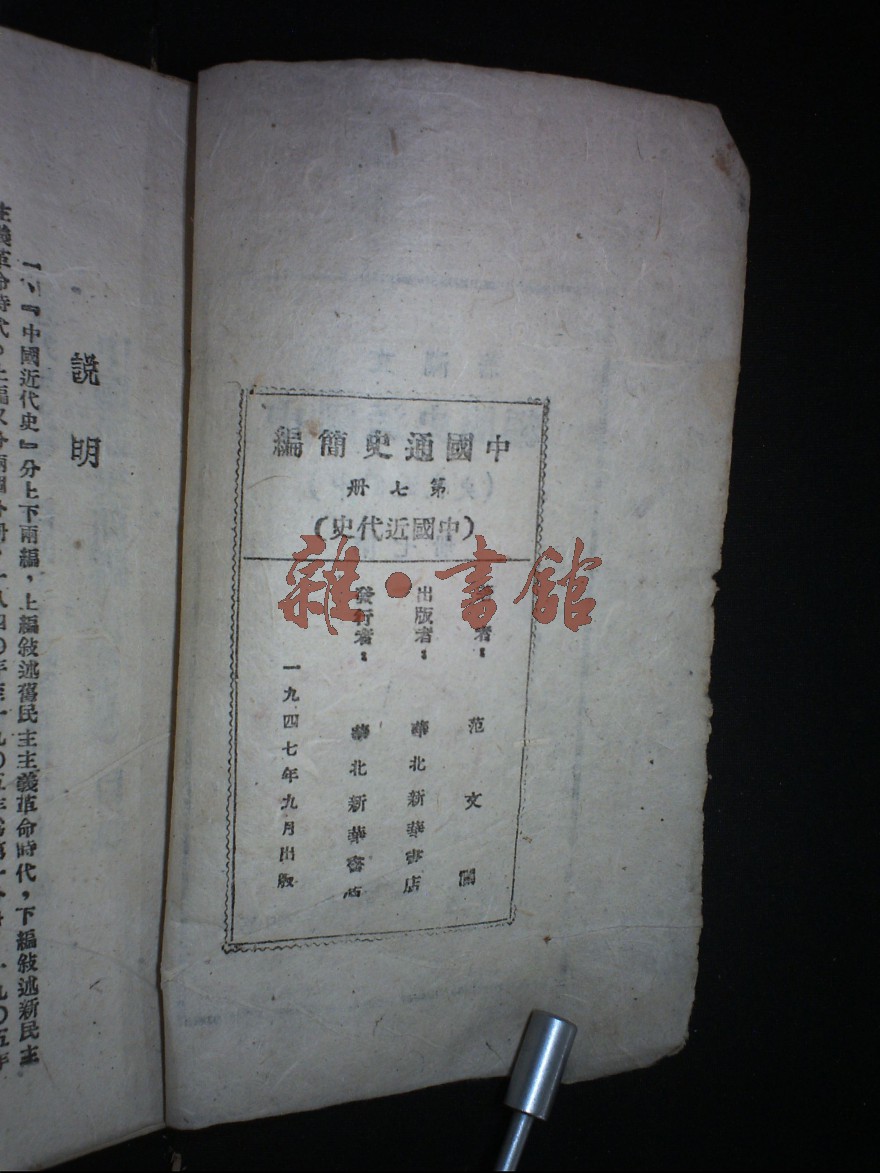 中國通史簡編
第七册
（中國近代史）
者：范文瀾
出版者：華北新華書店
發行者：華北新華書店
一九四七年九月出版
說明
一、『中國近代史』分上下兩編，上編敍述舊民主主義革命時代，下編敍述新民主
主義革命時代。上編又分兩個分册，一八四〇年至一九〇五年爲第一分册，一九〇五年
雜·書館